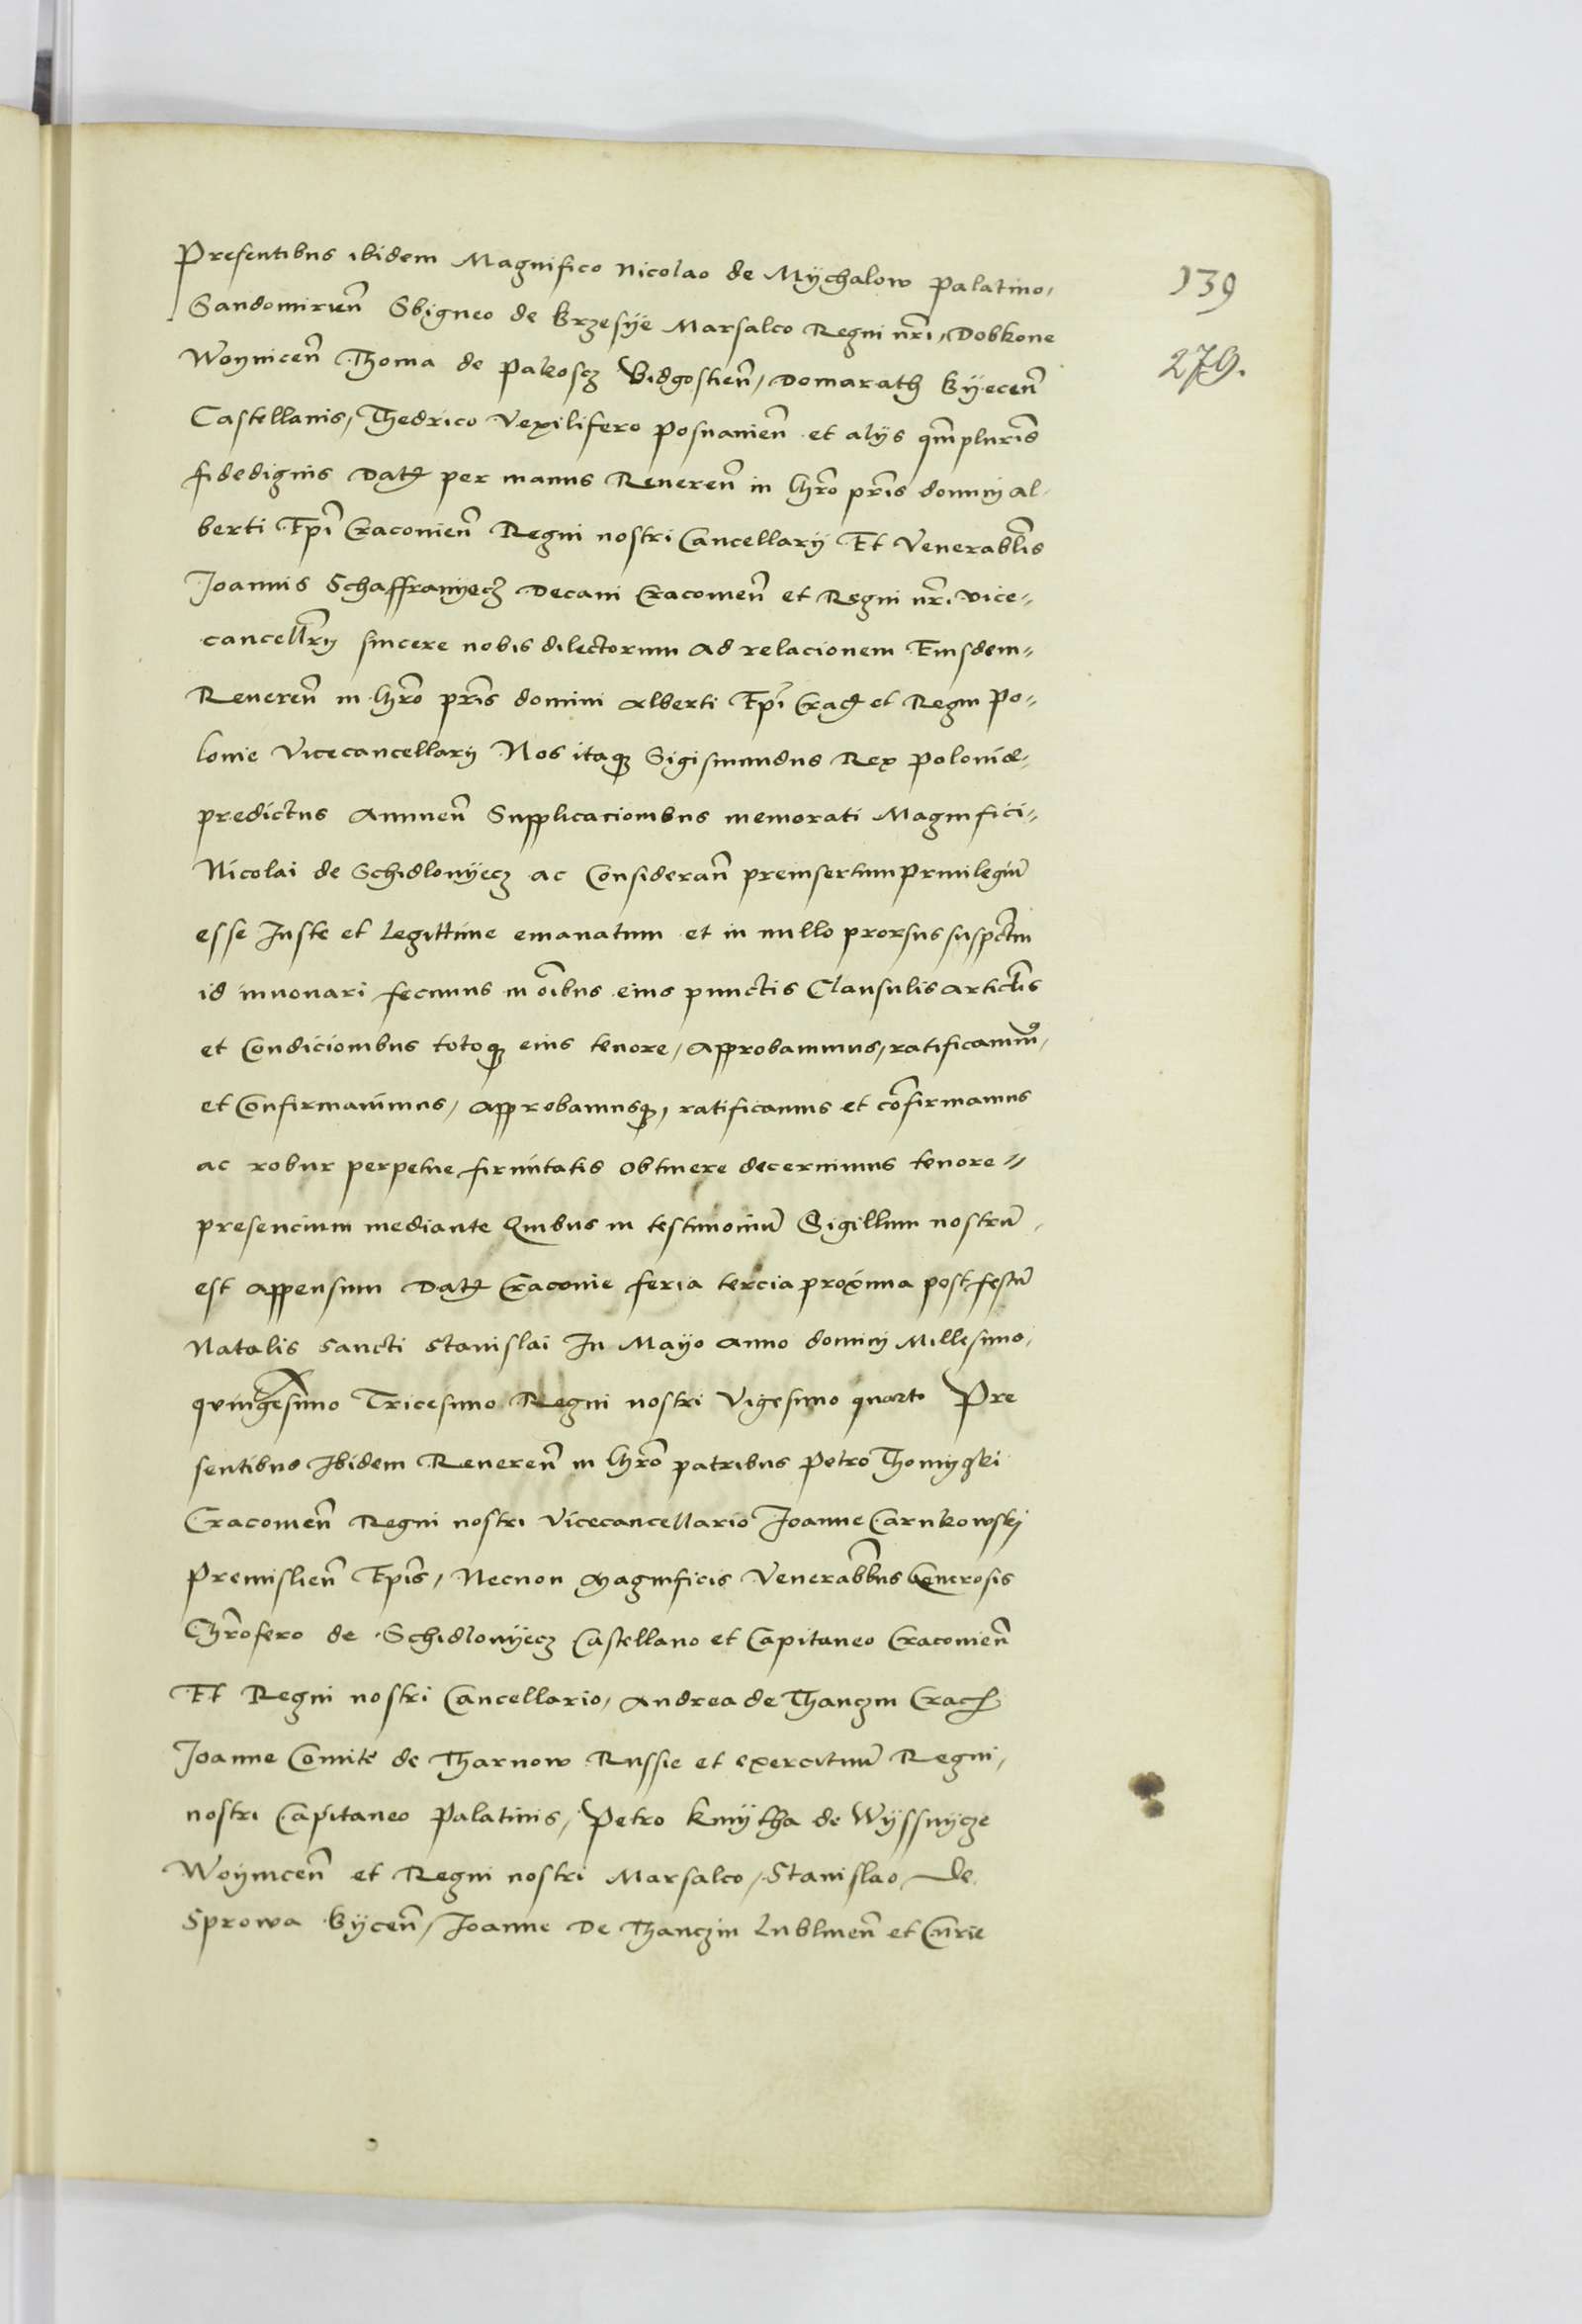 Presentibus ibidem Magnifico Nicolao de Mÿchalow Palatino,
139
Sandomirien̄ Sbigneo de Brzesÿe Marsalco Regni nr̄i, Dobkone
Woynicen̄ Thoma de Pakoscz Bidgostien̄, Domarath Bÿecen̄
279.
Castellanis, Thedrico Vexilifero Posnanien̄ et alÿs qm̄pluris̄
fidedignis Datꝭ per manus Reveren̄ in Chr̄o pr̄is dominj Al-
berti Ep̄i Cracovien̄ Regni nostri Cancellarÿ Et Venerabl̄is
Joannis Schaffranyecz Decani Cracovien̄ et Regni nr̄i vice-
cancellr̄ÿ sincere nobis dilectorum ad relacionem Eiusdem-
Reveren̄ in Chr̄o pr̄is domini Alberti Ep̄i Cracꝭ et Regni Po-
lonie Vicecancellarÿ Nos itaqꝫ Sigismundus Rex Poloniæ
predictus Annuen̄ Supplicacionibus memorati Magnifici-
Nicolai de Schidlovÿecz ac Consideran̄ preinsertum Privilegiū
esse Juste et Legittime emanatum et in nullo prorsus suspectū
id innovari fecimus in oībus eius punctis Clausulis articl̄is
et Condicionibus totoqꝫ eius tenore, approbavimus, ratificavimꝰ,
et Confirmavimus, approbamusqꝫ, ratificamus et cōfirmamus
ac robur perpetue firmitatis obtinere decernimus tenore-
presencium mediante Quibus in testimoniū Sigillum nostrū
est appensum Datꝭ Cracovie feria tercia proxima post festū
Natalis Sancti Stanislai In Mayo Anno dominj Millesimo,
quingesimo Tricesimo Regni nostri Vigesimo quarto Pre
sentibus Ibidem Reveren̄ in Chr̄o patribus Petro Thomyczki
Cracovien̄ Regni nostri Vicecancellario Joanne Carnkowskj
Premislien̄ Ep̄is, Necnon Magnificis Venerabl̄ibus Generosis
Chr̄ofero de Schidlovÿecz Castellano et Capitaneo Cracovien̄
Et Regni nostri Cancellario, Andrea de Thanczin Cracꝭ
Joanne Comite de Tharnow Russie et exercituū Regni,
nostri Capitaneo Palatinis, Petro Kmÿtha de Wÿssnycze
Woynicen̄ et Regni nostri Marsalco, Stanislao de
Sprowa Bÿcen̄, Joanne De Thanczin Lublinen̄ et Curie